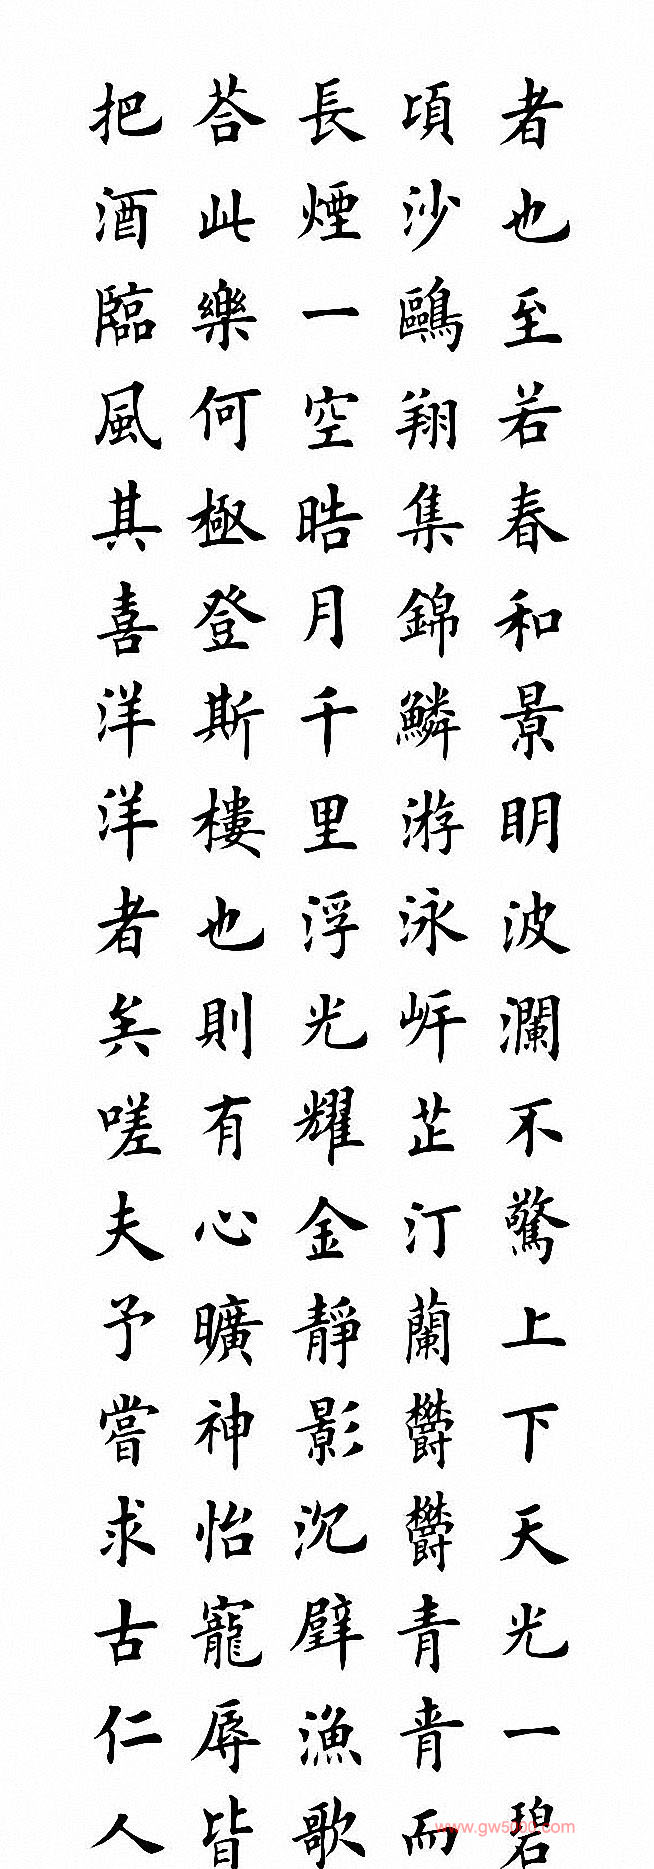 者也至若春和景明波瀾不驚上下天光一碧
頃沙鷗翔集錦鱗游泳岸芷汀蘭鬱鬱青青而
長煙一空晧月千里浮光耀金靜影沉璧漁歌
荅此樂何極登斯樓也則有心曠神怡寵辱皆
把酒臨風其喜洋洋者矣嗟夫予嘗求古仁人
www.gw5000.com